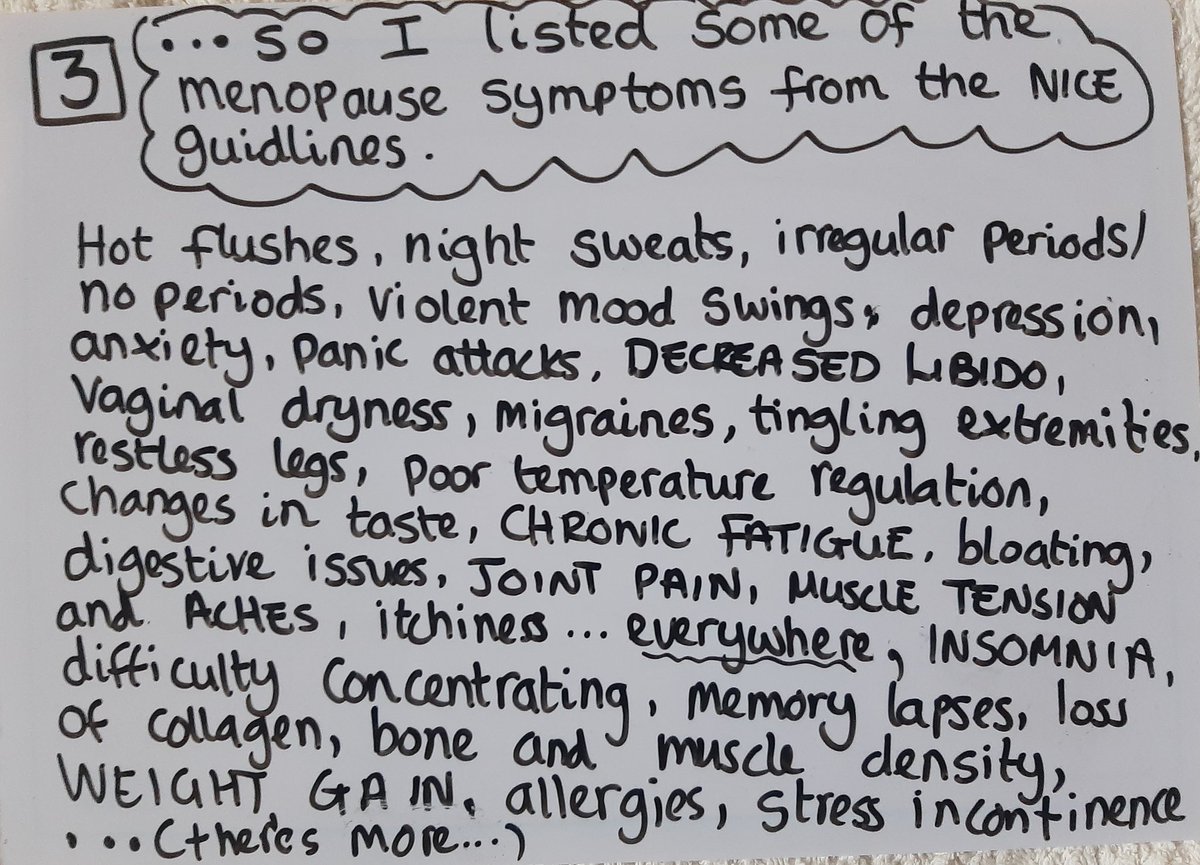 3
... so I listed some of the
menopause symptoms from the NICE
guidlines.
Hot flushes, night sweats, irregular periods/
no periods, violent mood swings, depression,
anxiety, panic attacks, DECREASED LIBIDO,
Vaginal dryness, migraines, tingling extremities,
restless legs, poor temperature regulation,
changes in taste, CHRONIC FATIGUE, bloating,
digestive issues, JOINT PAIN, MUSCLE TENSION
and ACHES, itchiness ... everywhere, INSOMNIA,
difficulty concentrating, memory lapses, loss
of collagen, bone and muscle density,
WEIGHT GAIN, allergies, stress incontinence
....(there's more...)